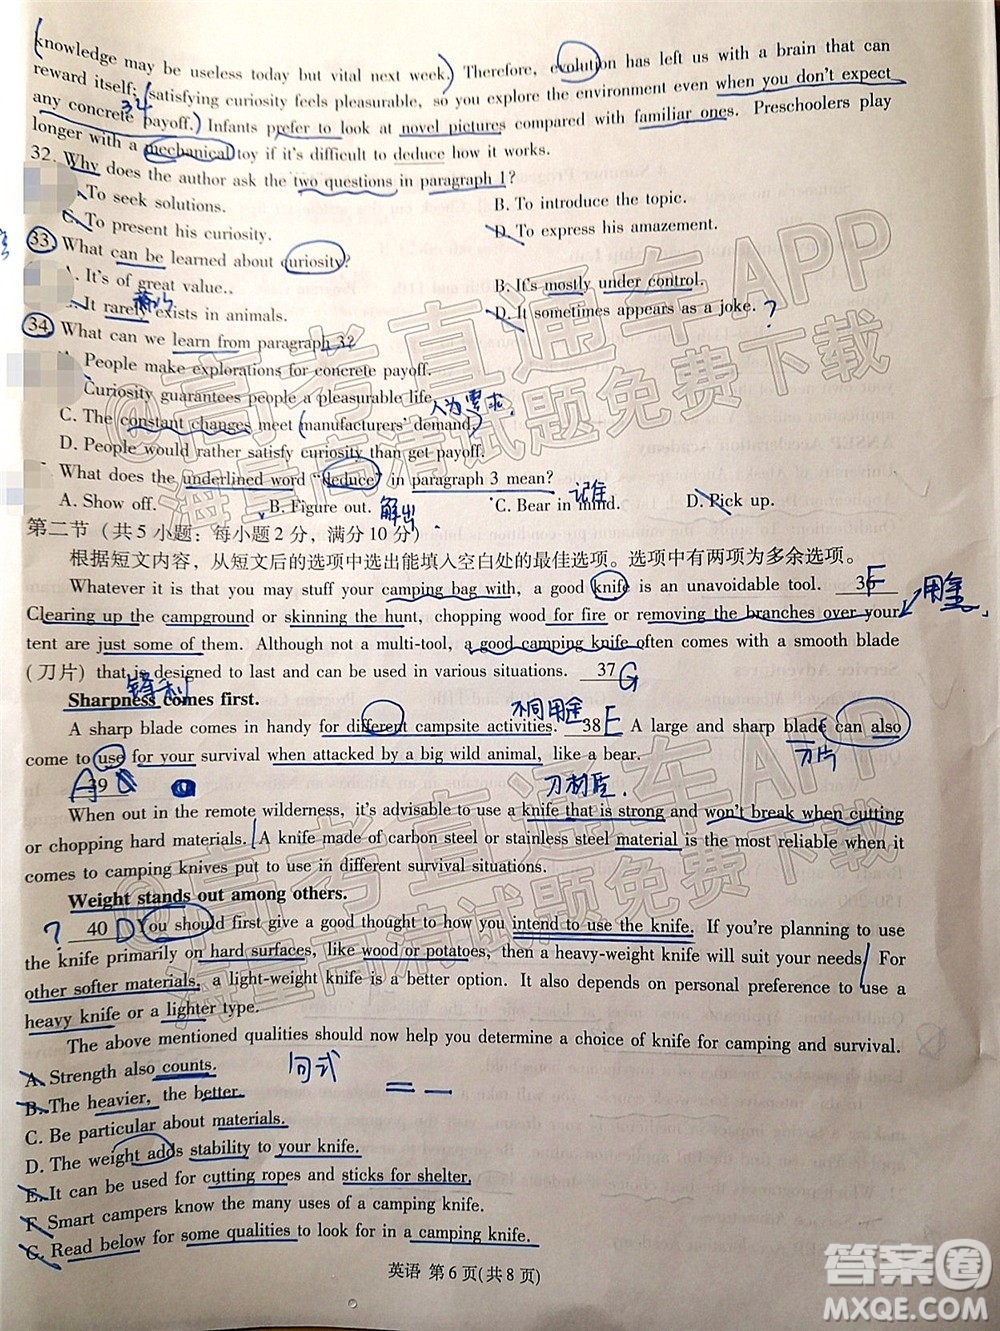 knowledge may be useless today but vital next week. Therefore, evolution has left us with a brain that can
reward itself; satisfying curiosity feels pleasurable, so you explore the environment even when you don't expect
any concrete payoff. Infants prefer to look at novel pictures compared with familiar ones. Preschoolers play
34
longer with a mechanical toy if it's difficult to deduce how it works.
32. Why does the author ask the two questions in paragraph 1?
To seek solutions.
B. To introduce the topic.
C. To present his curiosity.
D. To express his amazement.
33. What can be learned about curiosity?
A. It's of great value.
B. It's mostly under control.
It rarely exists in animals.
D. It sometimes appears as a joke. ?
34. What can we learn from paragraph 3?
People make explorations for concrete payoff.
Curiosity guarantees people a pleasurable life.
人为需求.
C. The constant changes meet manufacturers' demand.
D. People would rather satisfy curiosity than get payoff.
What does the underlined word "deduce" in paragraph 3 mean?
A. Show off.
B. Figure out. 解出.
C. Bear in mind. 记住
D. Pick up.
第二节(共5小题;每小题2分,满分10分)
根据短文内容,从短文后的选项中选出能填入空白处的最佳选项。选项中有两项为多余选项。
Whatever it is that you may stuff your camping bag with, a good knife is an unavoidable tool. 36 F
Clearing up the campground or skinning the hunt, chopping wood for fire or removing the branches over your
用途.
tent are just some of them. Although not a multi-tool, a good camping knife often comes with a smooth blade
(刀片) that is designed to last and can be used in various situations. 37 G
锋利
Sharpness comes first.
不同用途
A sharp blade comes in handy for different campsite activities. 38 E A large and sharp blade can also
刀片
come to use for your survival when attacked by a big wild animal, like a bear.
39 A
When out in the remote wilderness, it's advisable to use a knife that is strong and won't break when cutting
or chopping hard materials. A knife made of carbon steel or stainless steel material is the most reliable when it
comes to camping knives put to use in different survival situations.
Weight stands out among others.
? 40 D You should first give a good thought to how you intend to use the knife. If you're planning to use
the knife primarily on hard surfaces, like wood or potatoes, then a heavy-weight knife will suit your needs. For
other softer materials, a light-weight knife is a better option. It also depends on personal preference to use a
heavy knife or a lighter type.
The above mentioned qualities should now help you determine a choice of knife for camping and survival.
A. Strength also counts.
句式
B. The heavier, the better.
C. Be particular about materials.
D. The weight adds stability to your knife.
E. It can be used for cutting ropes and sticks for shelter.
F. Smart campers know the many uses of a camping knife.
G. Read below for some qualities to look for in a camping knife.
英语 第6页(共8页)
@高考直通车APP
海量高清试题免费下载
@高考直通车APP
海量高清试题免费下载
答案圈
MXQE.COM